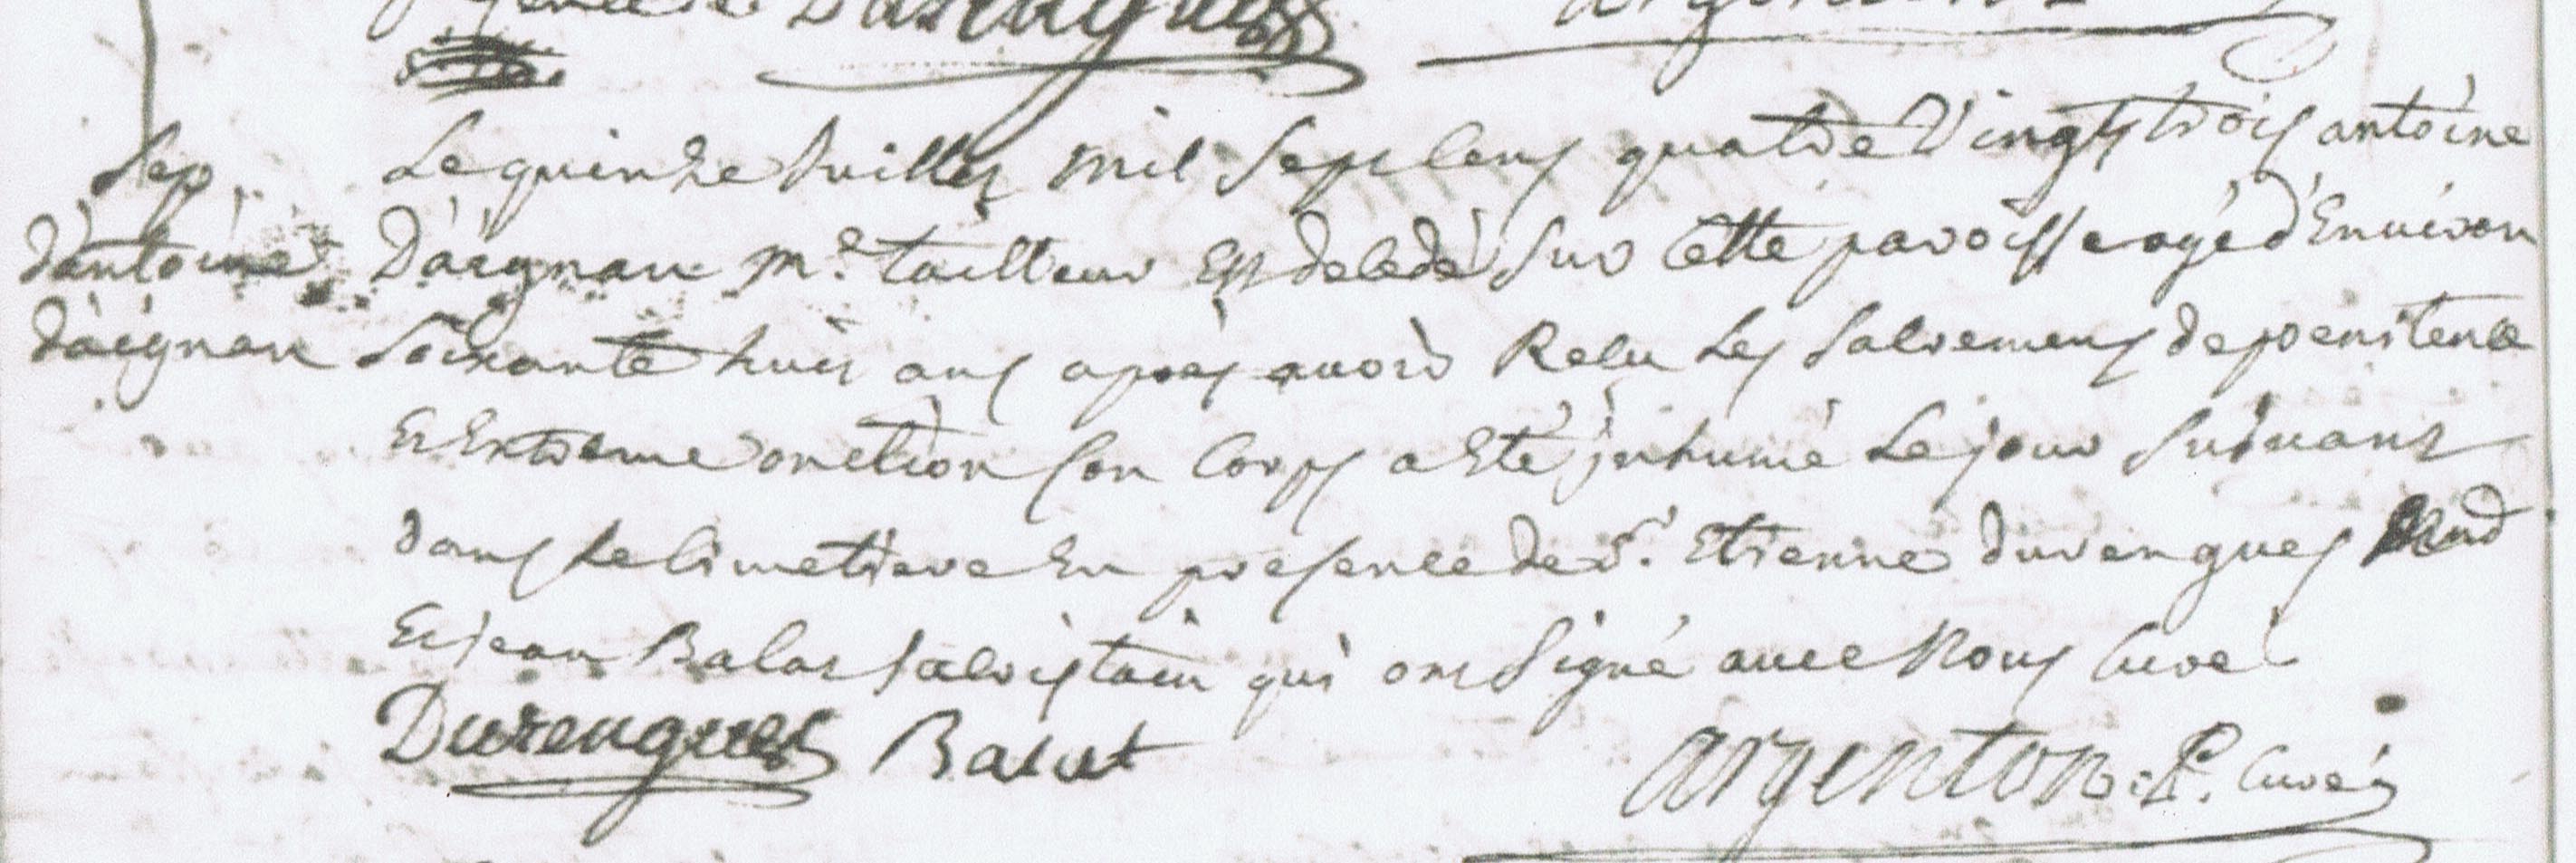 Durengues argenton
Sep. Le quinze Juillet mil Sept Cens quatre Vingts trois antoine
d'antoine Daignan me. tailleur Est decedé Sur Cette paroisse agé d'Environ
daignan Soixante huit ans après avoir Recu Les Sacremens de penitence
Et Extreme onction Son Corps a Eté inhumé Le jour Suivant
dans Le Cimetiere En presence de Sr. Etienne durengues
Et jean Balat Sacristain qui ont Signé avec Nous Curé
Durengues Balat argenton. P. Curé